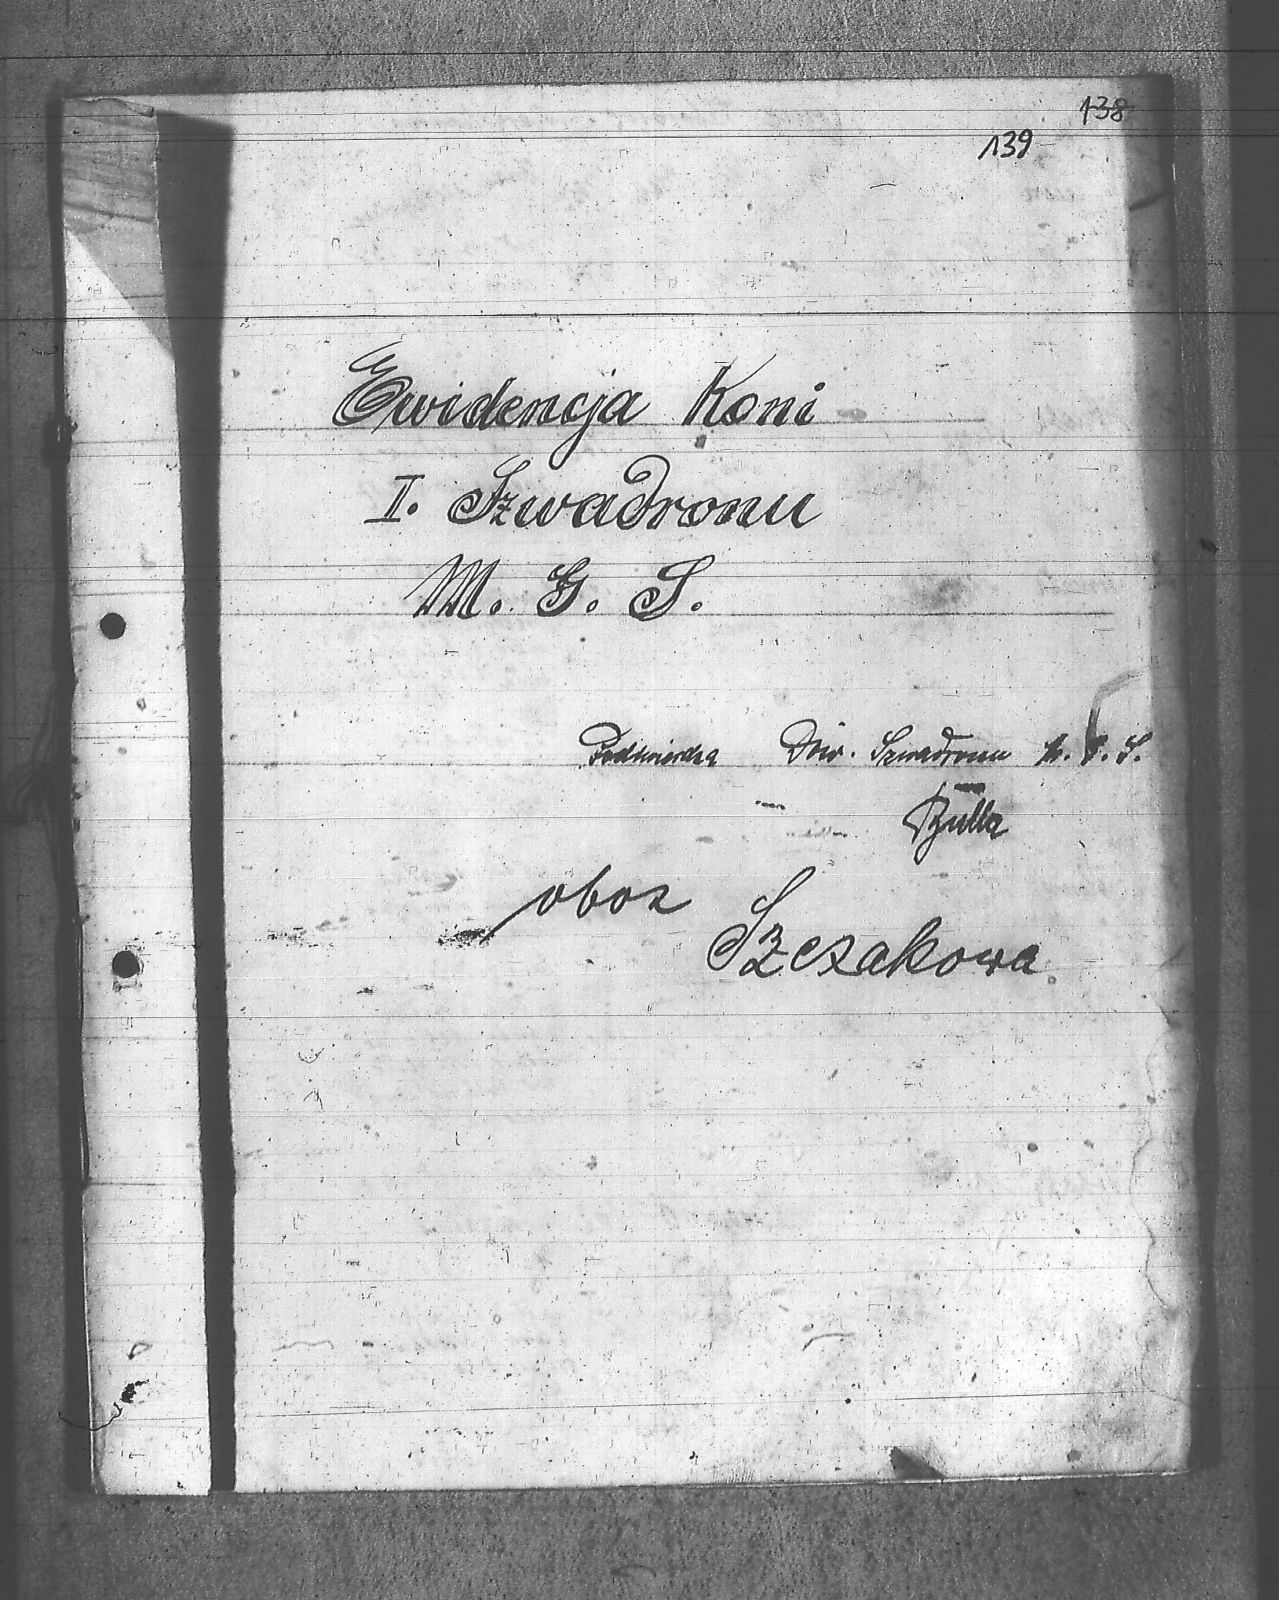 138
139
Ewidencja Koni
I. Szwadronu
M. G. S.
Podtwierdza Dow. Szwadronu M. G. S.
oboz
Szczakowa